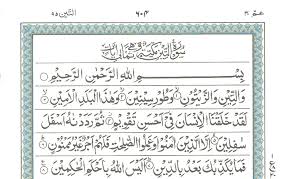 عم ٣٠ ٦٠٤ التين ٩٥
بِسْمِ اللهِ الرَّحْمٰنِ الرَّحِيْمِ
وَالتِّيْنِ وَالزَّيْتُوْنِ وَطُوْرِ سِيْنِيْنَ وَهٰذَا الْبَلَدِ الْاَمِيْنِ
لَقَدْ خَلَقْنَا الْاِنْسَانَ فِيْ اَحْسَنِ تَقْوِيْمٍ ثُمَّ رَدَدْنٰهُ اَسْفَلَ
سٰفِلِيْنَ اِلَّا الَّذِيْنَ اٰمَنُوْا وَعَمِلُوا الصّٰلِحٰتِ فَلَهُمْ اَجْرٌ غَيْرُ مَمْنُوْنٍ
فَمَا يُكَذِّبُكَ بَعْدُ بِالدِّيْنِ اَلَيْسَ اللهُ بِاَحْكَمِ الْحٰكِمِيْنَ